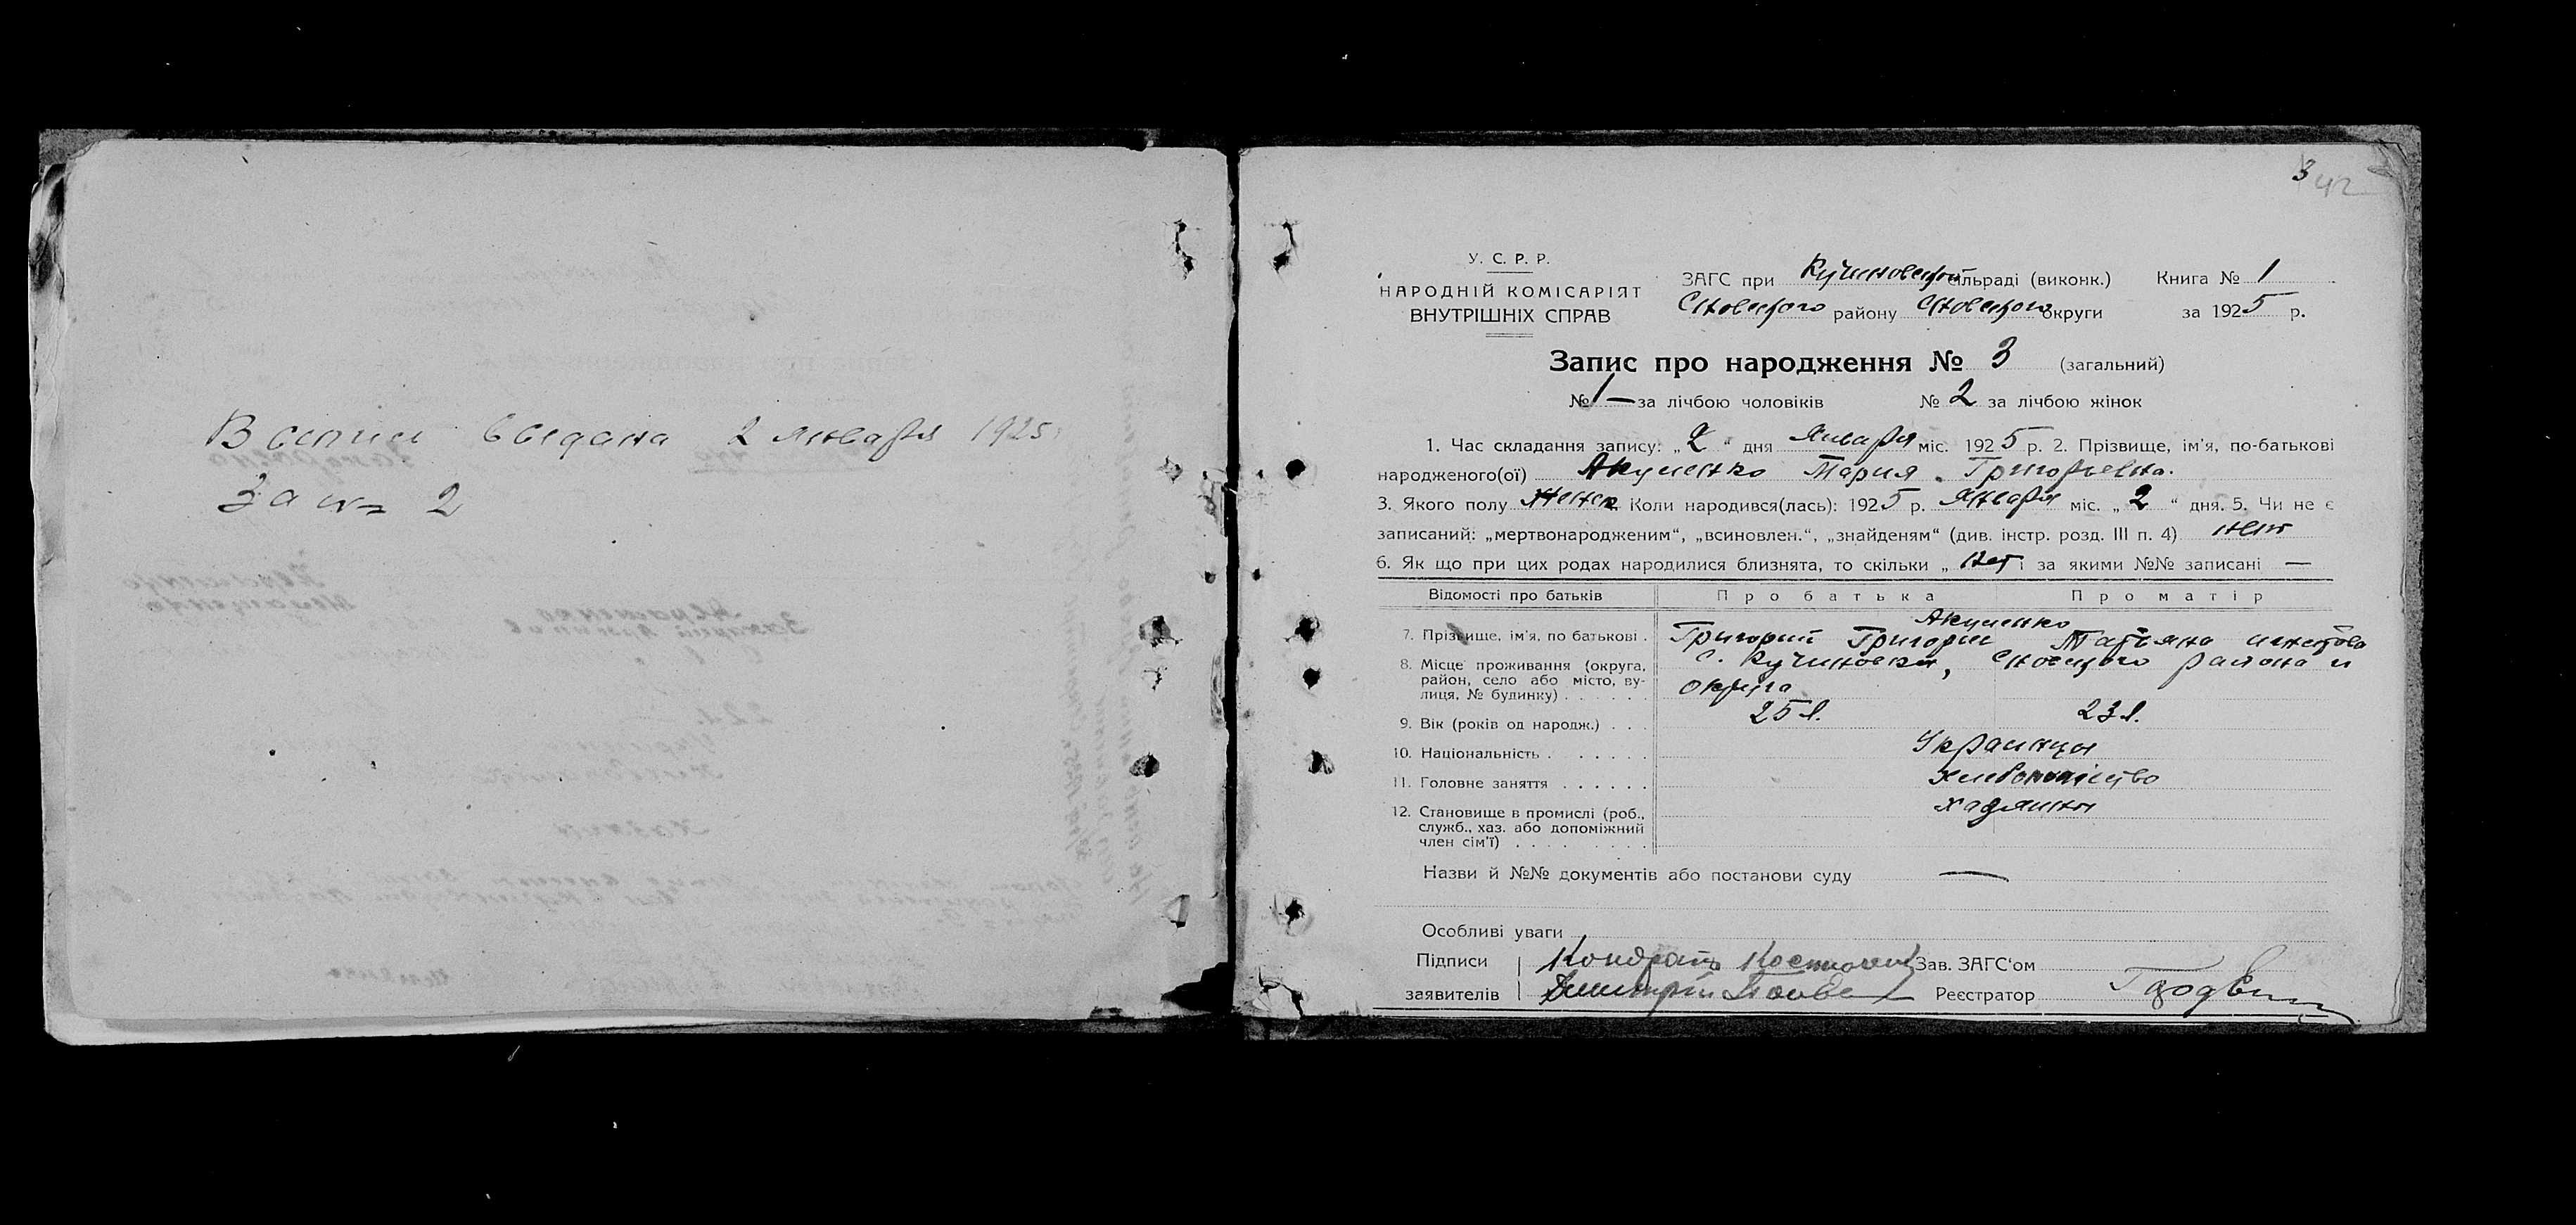 Выпись выдана 2 января 1925
За № 2
3
42
У. С. Р. Р.
НАРОДНІЙ КОМІСАРІЯТ
ВНУТРІШНІХ СПРАВ
ЗАГС при Кучиновской сільраді (виконк.) Книга № 1
Сновского району Сновского округи за 1925 р.
Запис про народження № 3 (загальний)
№ 1 — за лічбою чоловіків № 2 за лічбою жінок
1. Час складання запису: „2“ дня Января міс. 1925 р. 2. Прізвище, ім'я, по-батькові
народженого(ої) Акуленко Мария Григорьевна.
3. Якого полу женск Коли народився(лась): 1925 р. Января міс. „2“ дня. 5. Чи не є
записаний: „мертвонародженим“, „всиновлен.“, „знайденям“ (див. інстр. розд. III п. 4) нет
6. Як що при цих родах народилися близнята, то скільки „нет і за якими №№ записані —
Відомості про батьків Про батька Про матір
Акуленко
7. Прізвище, ім'я, по батькові . Григорий Григорие Татьяна
8. Місце проживання (округа, район, село або місто, вулиця, № будинку) . . . . . . с. Кучиновки, Сновского района и
округа
9. Вік (років од народж.) . . . 25 л. 23 л.
10. Національність . . . . . . . Украинцы
11. Головне заняття . . . . . . хлебопашество
12. Становище в промислі (роб.,
служб., хаз. або допоміжний
член сім'ї) . . . . . . . . .
Назви й №№ документів або постанови суду —
Особливі уваги
Підписи Кондрать Зав. ЗАГС'ом
заявителів Дмитрий Реєстратор